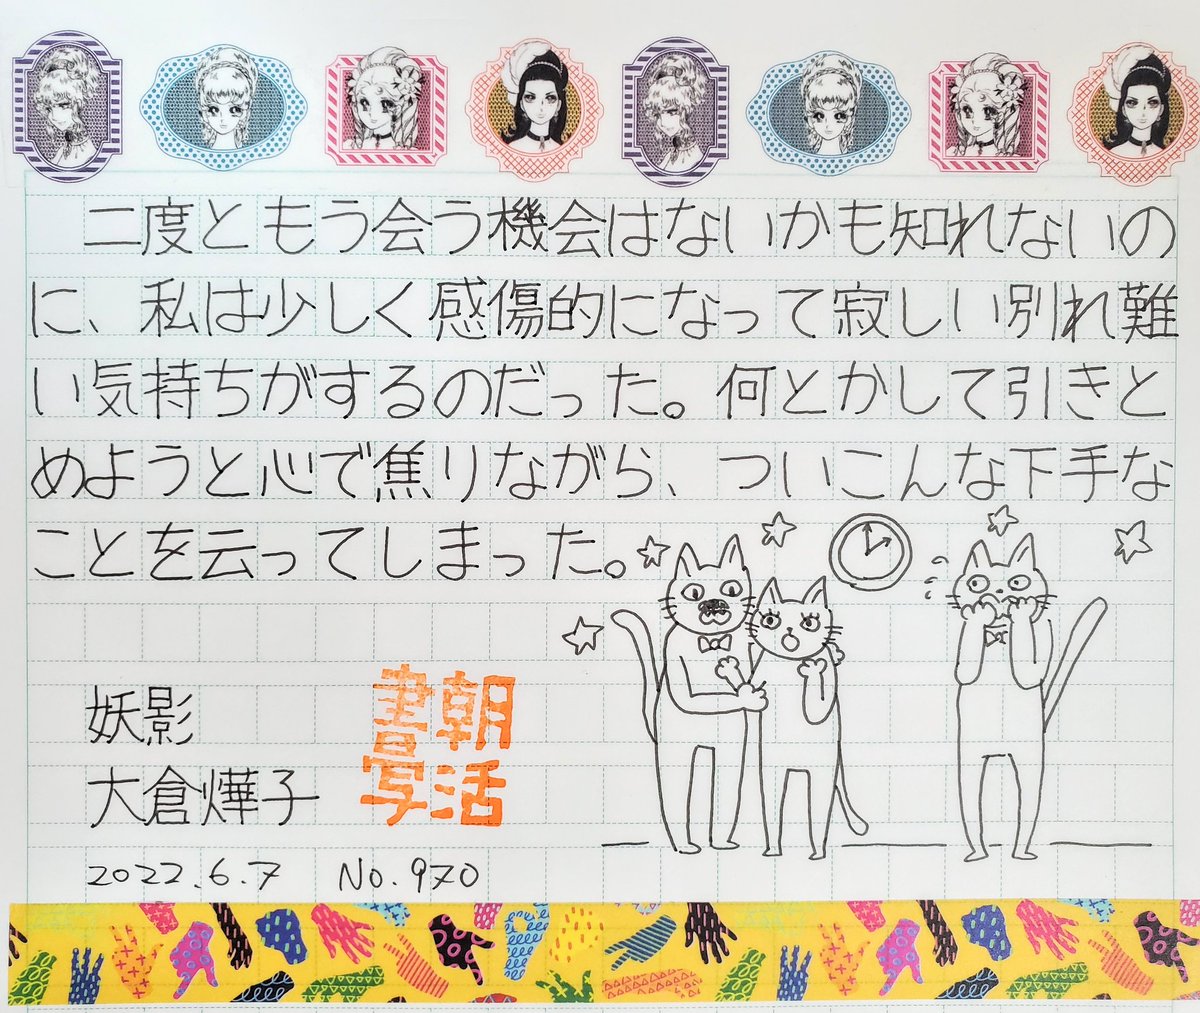 二度ともう会う機会はないかも知れないの
に、私は少しく感傷的になって寂しい別れ難
い気持ちがするのだった。何とかして引きと
めようと心で焦りながら、ついこんな下手な
ことを云ってしまった。
妖影
大倉燁子
2022.6.7 No.970
朝活
書写